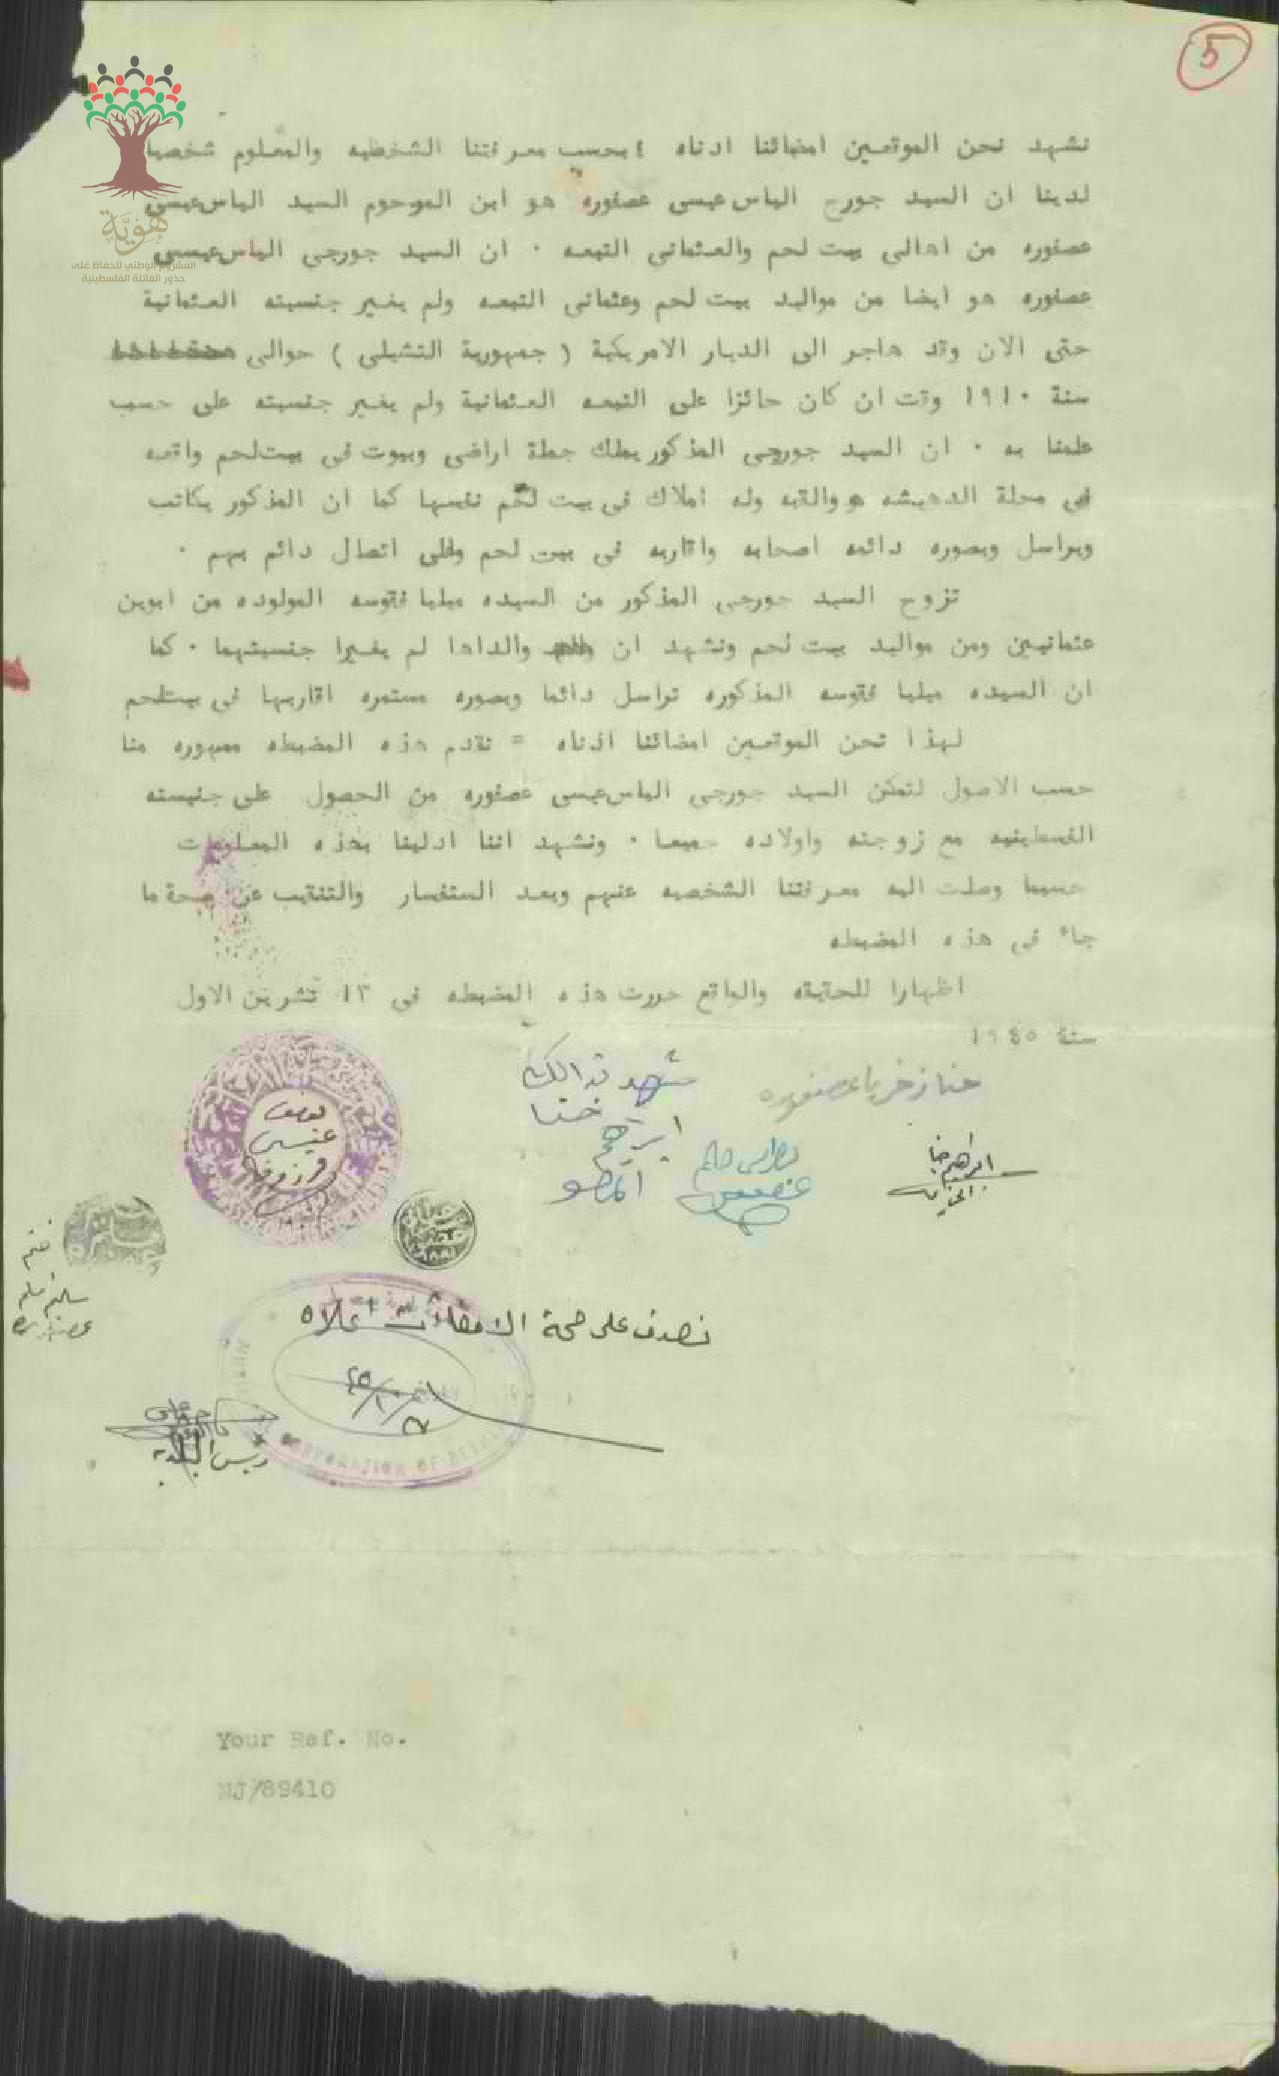 5
هَوِيَّة
المشروع الوطني للحفاظ على
جذور العائلة الفلسطينية
نشهد نحن الموقعين امضائنا ادناه ٤ بحسب معرفتنا الشخطيه والمعلوم شخصيا
لدينا ان السيد جورج الياس عيسى عصفوره هو ابن المرحوم السيد الياس عيسى
عصفوره من اهالي بيت لحم والعثماني التبعه ٠ ان السيد جورجى الياس عيسى
عصفوره هو ايضا من مواليد بيت لحم وعثماني التبعه ولم يغير جنسيته العثمانية
حتى الان وقد هاجر الى الديار الامريكية ( جمهورية التشيلي ) حوالى
سنة ١٩١٠ وقت ان كان حائزا على التبعه العثمانية ولم يغير جنسيته على حسب
علمنا به ٠ ان السيد جورجى المذكور يملك جملة اراضى وبيوت فى بيت لحم واقعه
فى محلة الدهيشه والقبه وله املاك فى بيت لحم نفسها كما ان المذكور يكاتب
ويراسل وبصوره دائمه اصحابه واقاربه فى بيت لحم وعلى اتصال دائم بهم ٠
تزوج السيد جورجى المذكور من السيده ميليا فتوسه المولوده من ابوين
عثمانيين ومن مواليد بيت لحم ونشهد ان والداها لم يغيرا جنسيتهما ٠ كما
ان السيده ميليا فتوسه المذكوره تراسل دائما وبصوره مستمره اقاربها فى بيتلحم
لهذا نحن الموقعين امضائنا ادناه = نقدم هذه المضبطه ممهوره منا
حسب الاصول لتمكن السيد جورجى الياس عيسى عصفوره من الحصول على جنيسته
الفسطينيه مع زوجته واولاده جميعا ٠ ونشهد اننا ادلينا بهذه المعلومات
حسبما وصلت اليه معرفتنا الشخصيه عنهم وبعد الستفسار والتنقيب عن صحة ما
جاء فى هذه المضبطه
اظهارا للحقيقه والواقع حررت هذه المضبطه فى ١٣ تشرين الاول
سنة ١٩٤٥
حنا زخريا عصفوره
نشهد بذالك
حنا
ابراهيم
ابراهيم حنا
يوسف
عيسى
ختم
سليم
نصدق على صحة الامضاءات اعلاه
رئيس البلدية
CORPORATION OF
Your Ref. No.
MJ/89410